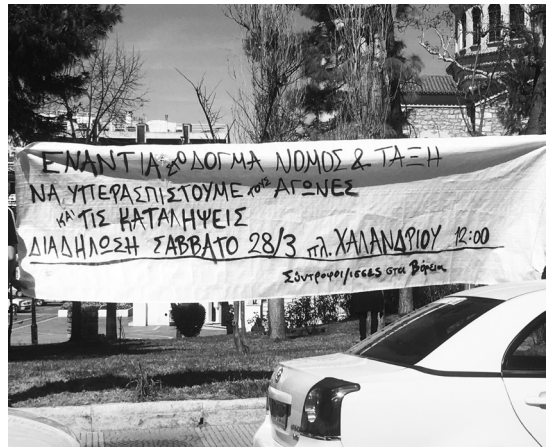 ΕΝΑΝΤΙΑ στο ΔΟΓΜΑ ΝΟΜΟΣ & ΤΑΞΗ
ΝΑ ΥΠΕΡΑΣΠΙΣΤΟΥΜΕ ΤΟΥΣ ΑΓΩΝΕΣ
ΚΑΙ ΤΙΣ ΚΑΤΑΛΗΨΕΙΣ
ΔΙΑΔΗΛΩΣΗ ΣΑΒΒΑΤΟ 28/3 πλ. ΧΑΛΑΝΔΡΙΟΥ 12:00
Σύντροφοι/ισσες στα Βόρεια